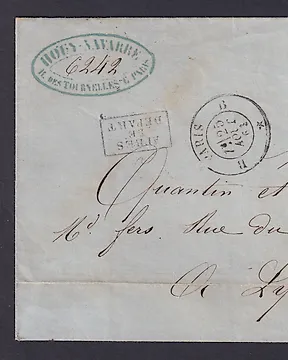 HOGY-NAVARRE
6242
R. DES TOURNELLES-E PARIS
APRÈS
LE
DÉPART
PARIS
B
Quantin et
Md fers. Rue du
A Ly